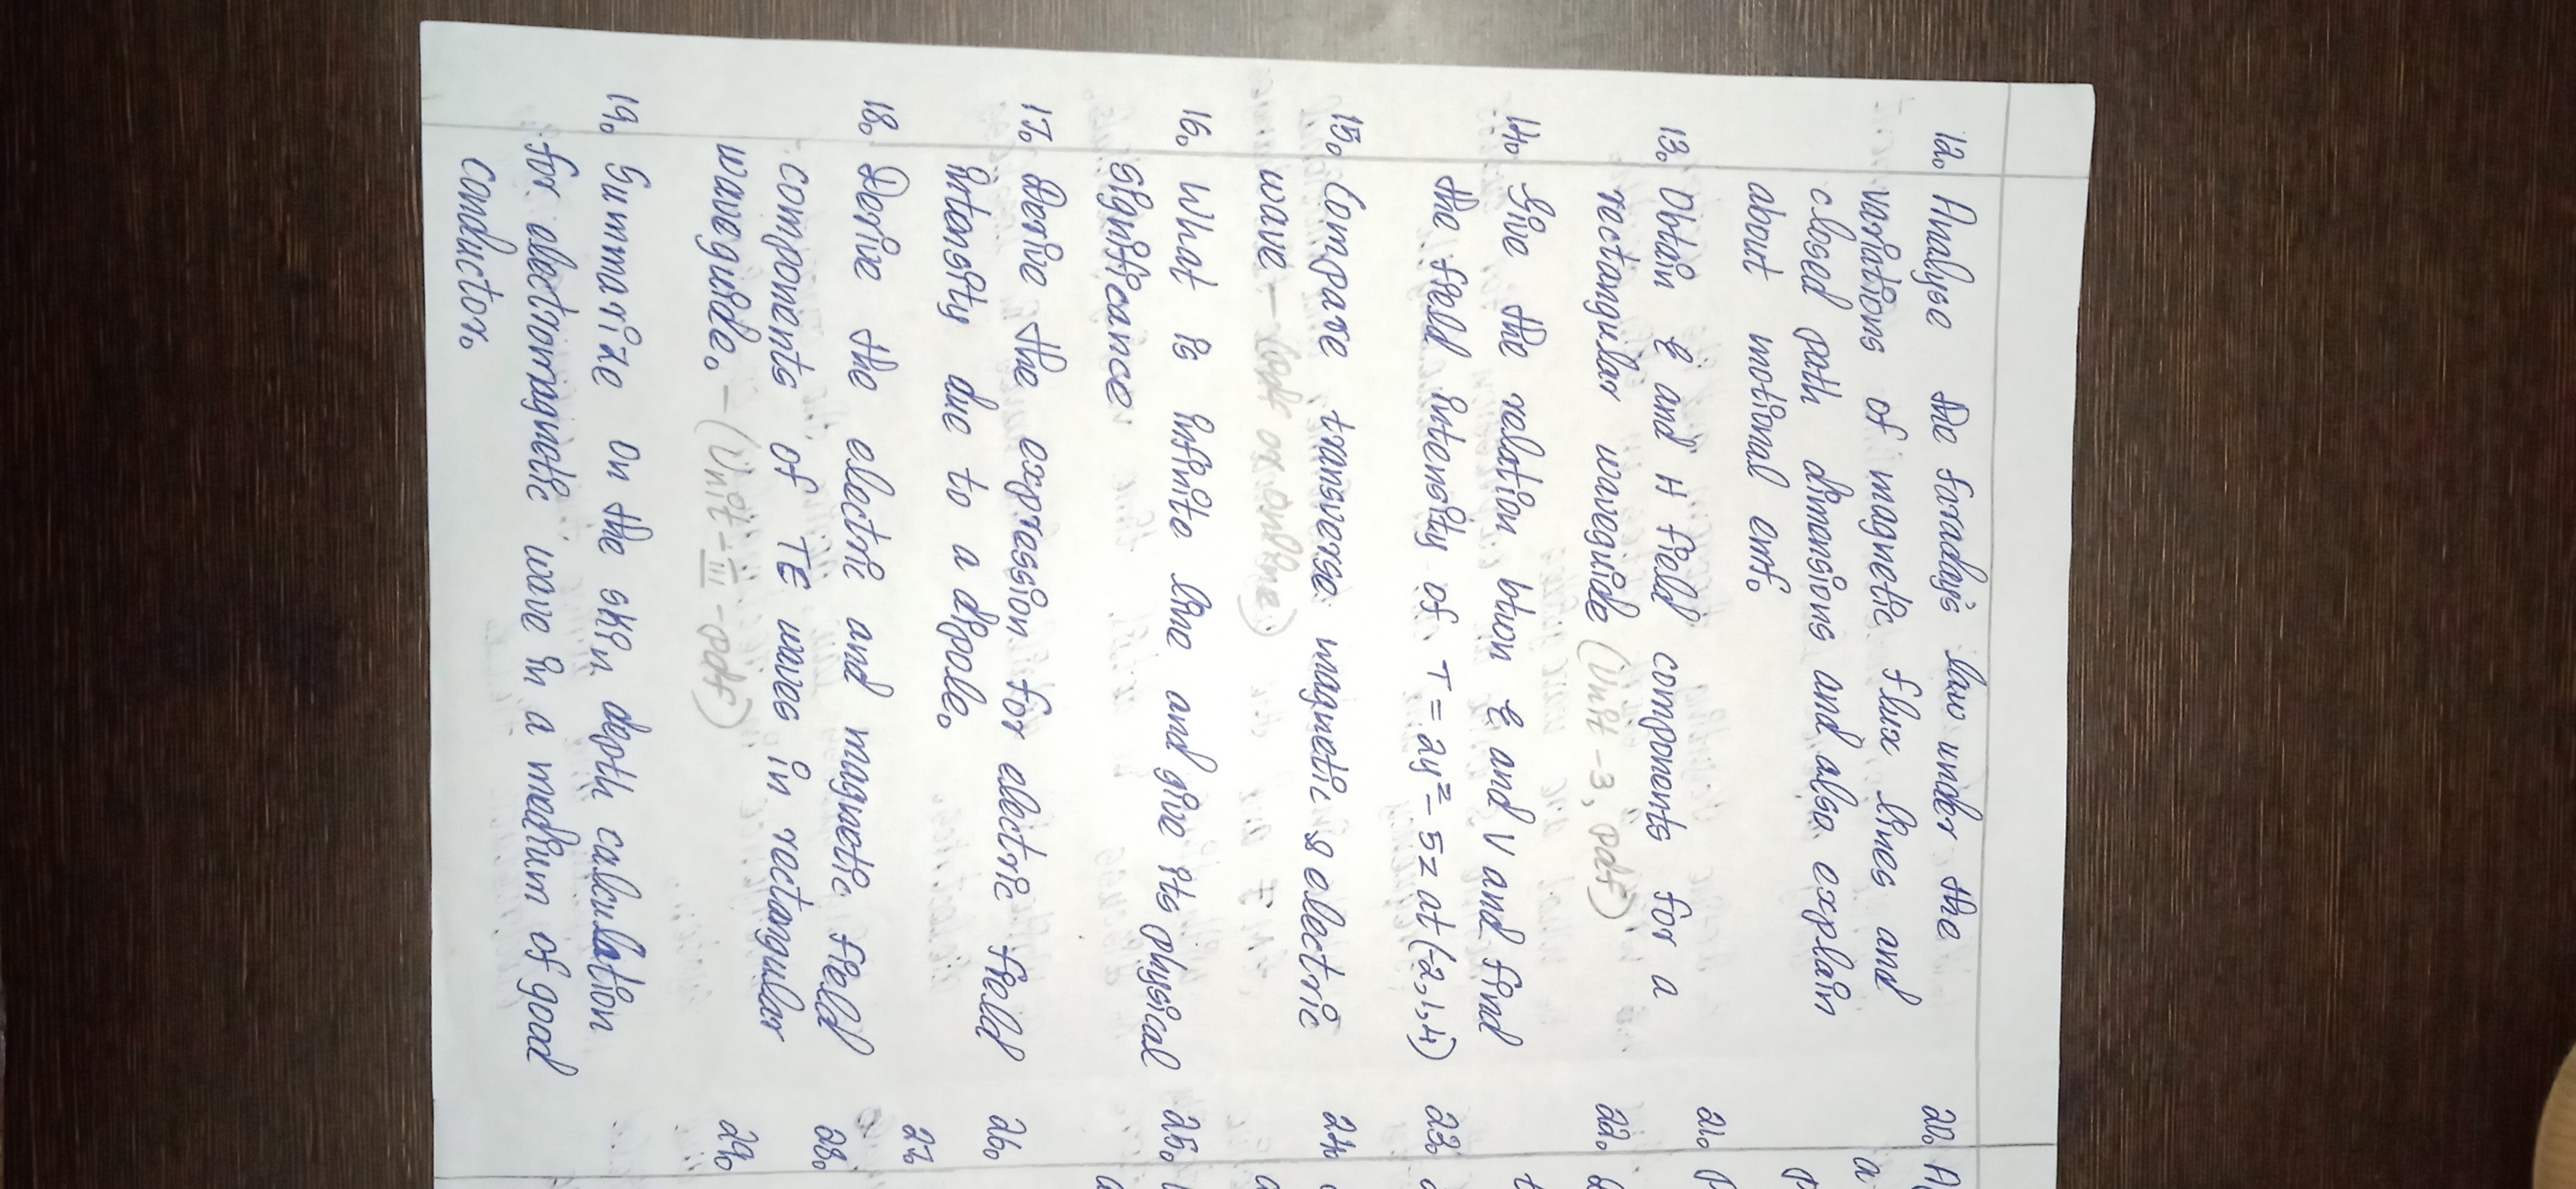 12. Analyse the faraday's law under the
variations of magnetic flux lines and
closed path dimensions and also explain
about motional emf.
13. Obtain E and H field components for a
rectangular waveguide (Unit -3, pdf)
14. Give the relation btwn E and V and find
the field intensity of T = 2y² - 5z at (-2,1,4)
15. Compare transverse magnetic & electric
wave - (pdf or online)
16. What is infinite line and give its physical
significance
17. Derive the expression for electric field
intensity due to a dipole.
18. Derive the electric and magnetic field
components of TE waves in rectangular
waveguide. - (Unit - III - pdf)
19. Summarize on the skin depth calculation
for electromagnetic wave in a medium of good
conductor.
20. A
21.
22.
23.
24.
25.
26.
27.
28.
29.